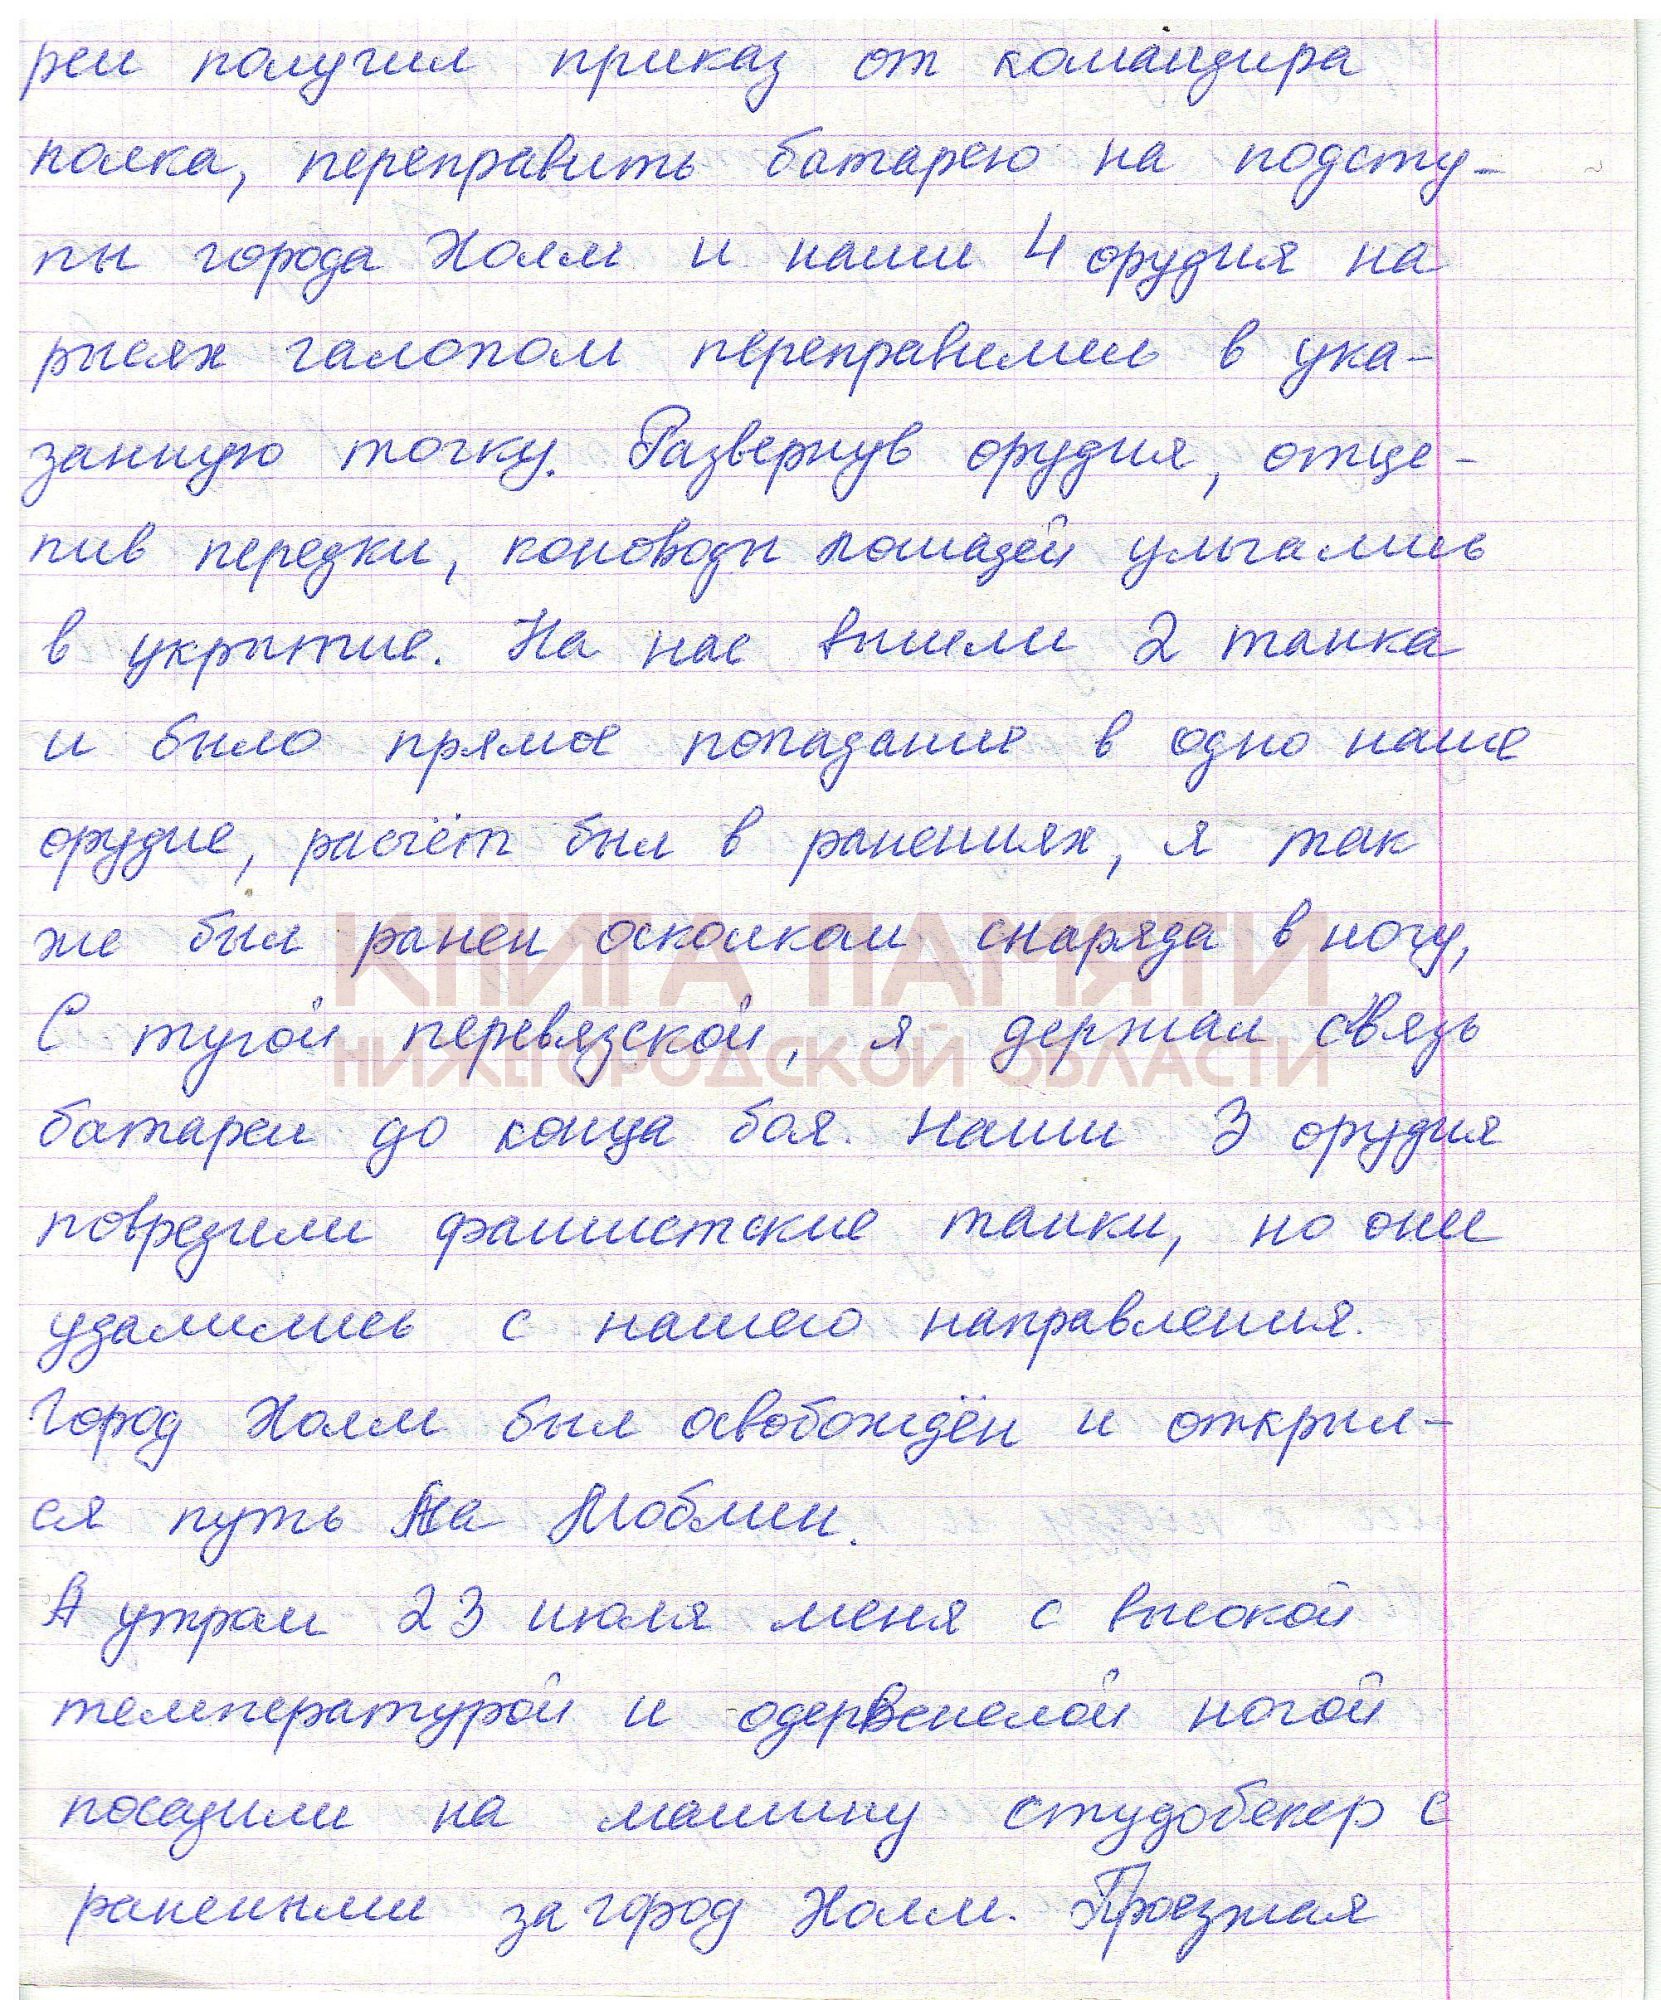 реи получил приказ от командира
полка, переправить батарею на подсту-
пы города Холм и наши 4 орудия на
рысях галопом переправились в ука-
занную точку. Развернув орудия, отце-
пив передки, коноводы лошадей умчались
в укрытие. На нас вышли 2 танка
и было прямое попадание в одно наше
орудие, расчёт был в ранениях, я так
же был ранен осколком снаряда в ногу,
КНИГА ПАМЯТИ
С тугой перевязской, я держал связь
НИЖЕГОРОДСКОЙ ОБЛАСТИ
батареи до конца боя. Наши 3 орудия
повредили фашистские танки, но они
удалились с нашего направления.
Город Холм был освобождён и открыл-
ся путь на Люблин.
А утром 23 июля меня с высокой
температурой и одервенелой ногой
посадили на машину студобекер с
ранеными за город Холм. Проезжая